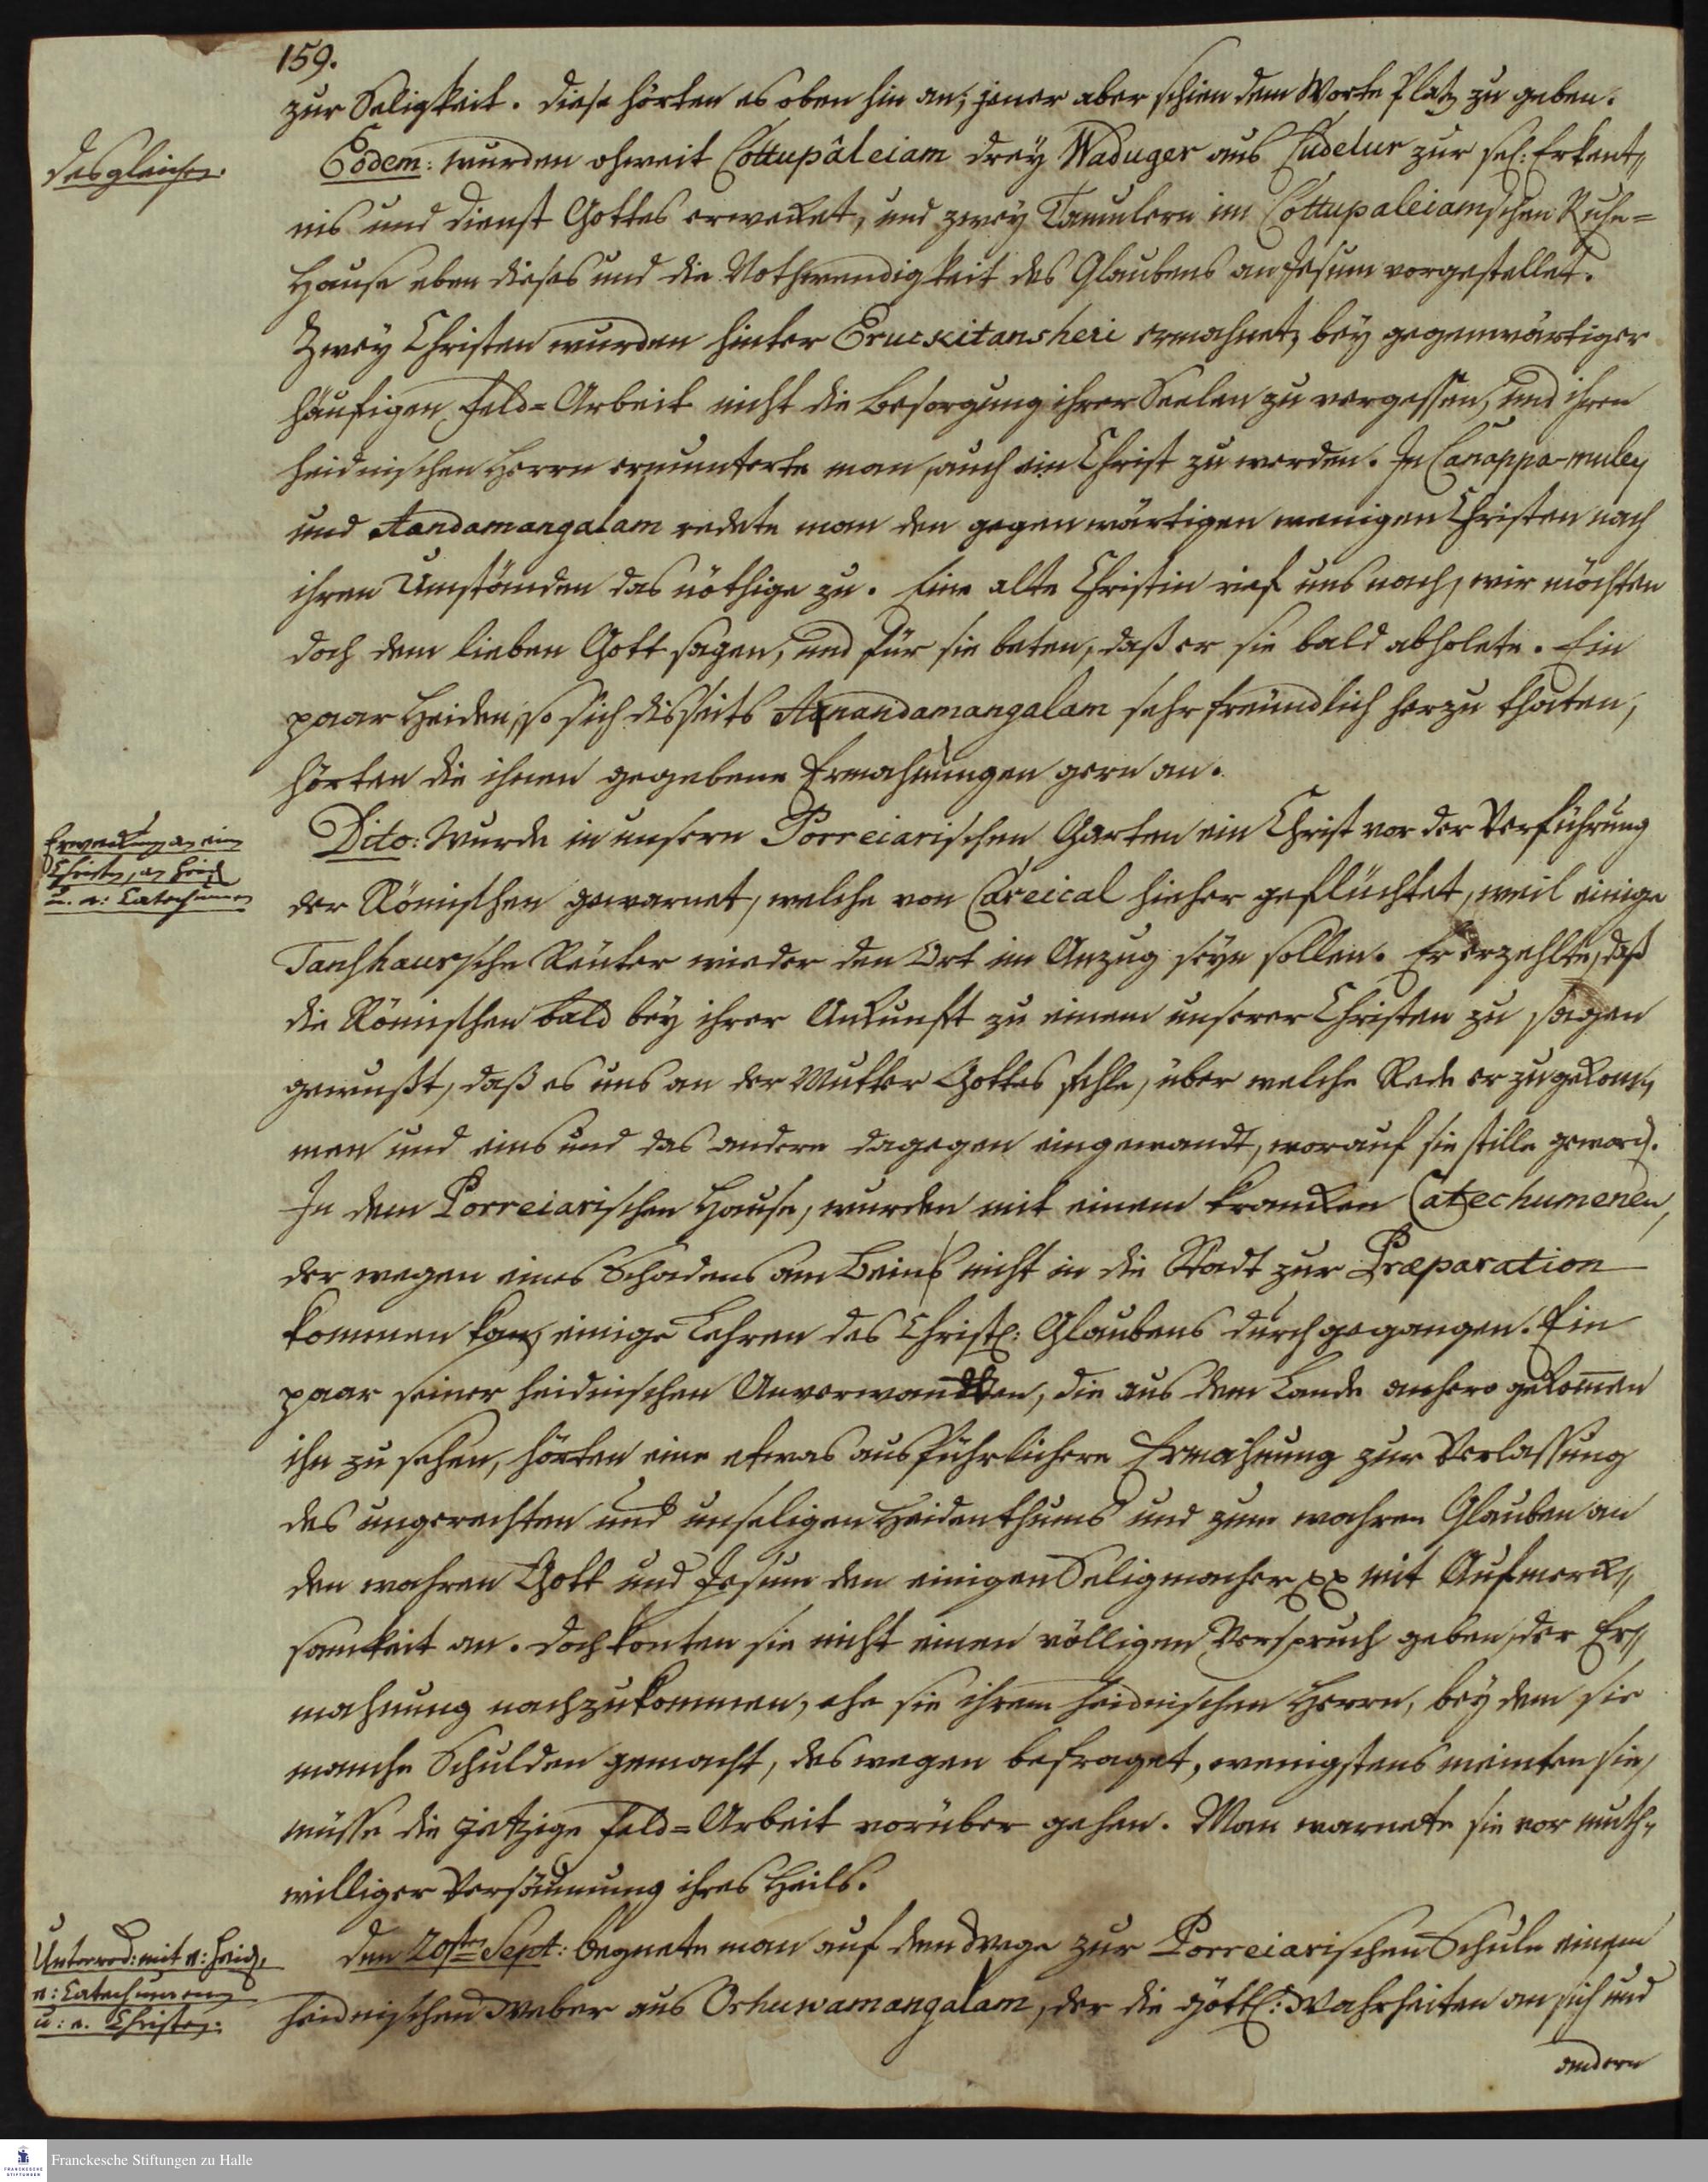 159.
zur Seligkeit. Diese hörten es oben hin an; jener aber schien dem Worte Platz zu geben.
desgleichen.
Eodem: wurden ohweit Cottupâleiam drey Waduger aus Cudelur zur sel: Erkent„
nis und Dienst Gottes erwecket, und zwey Tamulern im Cottupaleiamschen Ruhe=
Hause eben dieses und die Nothwendigkeit des Glaubens an Jesum vorgestellet.
Zwey Christen wurden hinter Eruckitansheri ermahnet, bey gegenwärtiger
häufigen Feld=Arbeit nicht die Besorgung ihrer Seelen zu vergessen, und ihren
heidnischen Herrn ermunterte man, auch ein Christ zu werden. In Canappa-muley
und Aandamangalam redete man den gegenwärtigen wenigen Christen nach
ihren Umständen das nöthige zu. Eine alte Christin rief uns nach, wir möchten
doch dem lieben Gott sagen, und für sie beten, daß er sie bald abholete. Ein
paar Heiden, so sich disseits Anandamangalam sehr freündlich herzu thaten,
hörten die ihnen gegebene Ermahnungen gern an.
Erweckung an ein
Christen, an Heid
u. e: Catechumen
Dito: Wurde in unsern Porreiarischen Garten ein Christ vor der Verführung
der Römischen gewarnet, welche von Careical hieher geflüchtet, weil einige
Tanshaursche Reuter wieder den Ort im Anzug seyn sollen. Er erzehlte, daß
die Römischen bald bey ihrer Ankunft zu einem unserer Christen zu sagen
gewußt, daß es uns an der Mutter Gottes fehle, über welche Rede er zugekom„
men und eins und das andere dagegen eingewandt, worauf sie stille geword.
In dem Porreiarischen Hause, wurden mit einem krancken Catechumenen,
der wegen eines Schadens am Bein nicht in die Stadt zur Præparation
kommen kan, einige Lehren des Christl: Glaubens durchgegangen. Ein
paar seiner heidnischen Anverwandten, die aus dem Lande anhero gekommen
ihn zu sehen, hörten eine etwas ausführlichere Ermahnung zur Verlassung
des ungerechten und unseligen Heidenthums und zum wahren Glauben an
den wahren Gott und Jesum den einigen Seligmacher pp mit Aufmerck„
samkeit an. Doch konten sie nicht einen völligen Verspruch geben, der Er„
mahnung nachzukommen, ehe sie ihrem heidnischen Herrn, bey dem sie
manche Schulden gemacht, deswegen befraget, wenigstens meinten sie,
müsse die jetzige Feld=Arbeit vorüber gehen. Man warnete sie vor muth„
williger Versäumung ihres Heils.
Unterred: mit e: Heid,
e: Catechumenen
u: e. Christen.
den 20sten Sept: begnete man auf dem Wege zur Porreiarischen Schule einem
heidnischen Weber aus Oshuwamangalam, der die göttl: Wahrheiten an sich und
andern
Franckesche Stiftungen zu Halle
FRANCKESCHE STIFTUNGEN